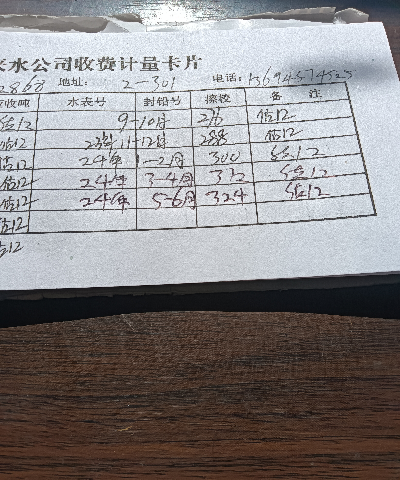 来水公司收费计量卡片
2868 地址: 2-301 电话: 13694574525
应收吨 水表号 封铅号 探校 备注
估12 9-10月 276 估12
估12 23年 11-12月 288 估12
估12 24年 1-2月 300 估12
估12 24年 3-4月 312 估12
估12 24年 5-6月 324 估12
估12
估12